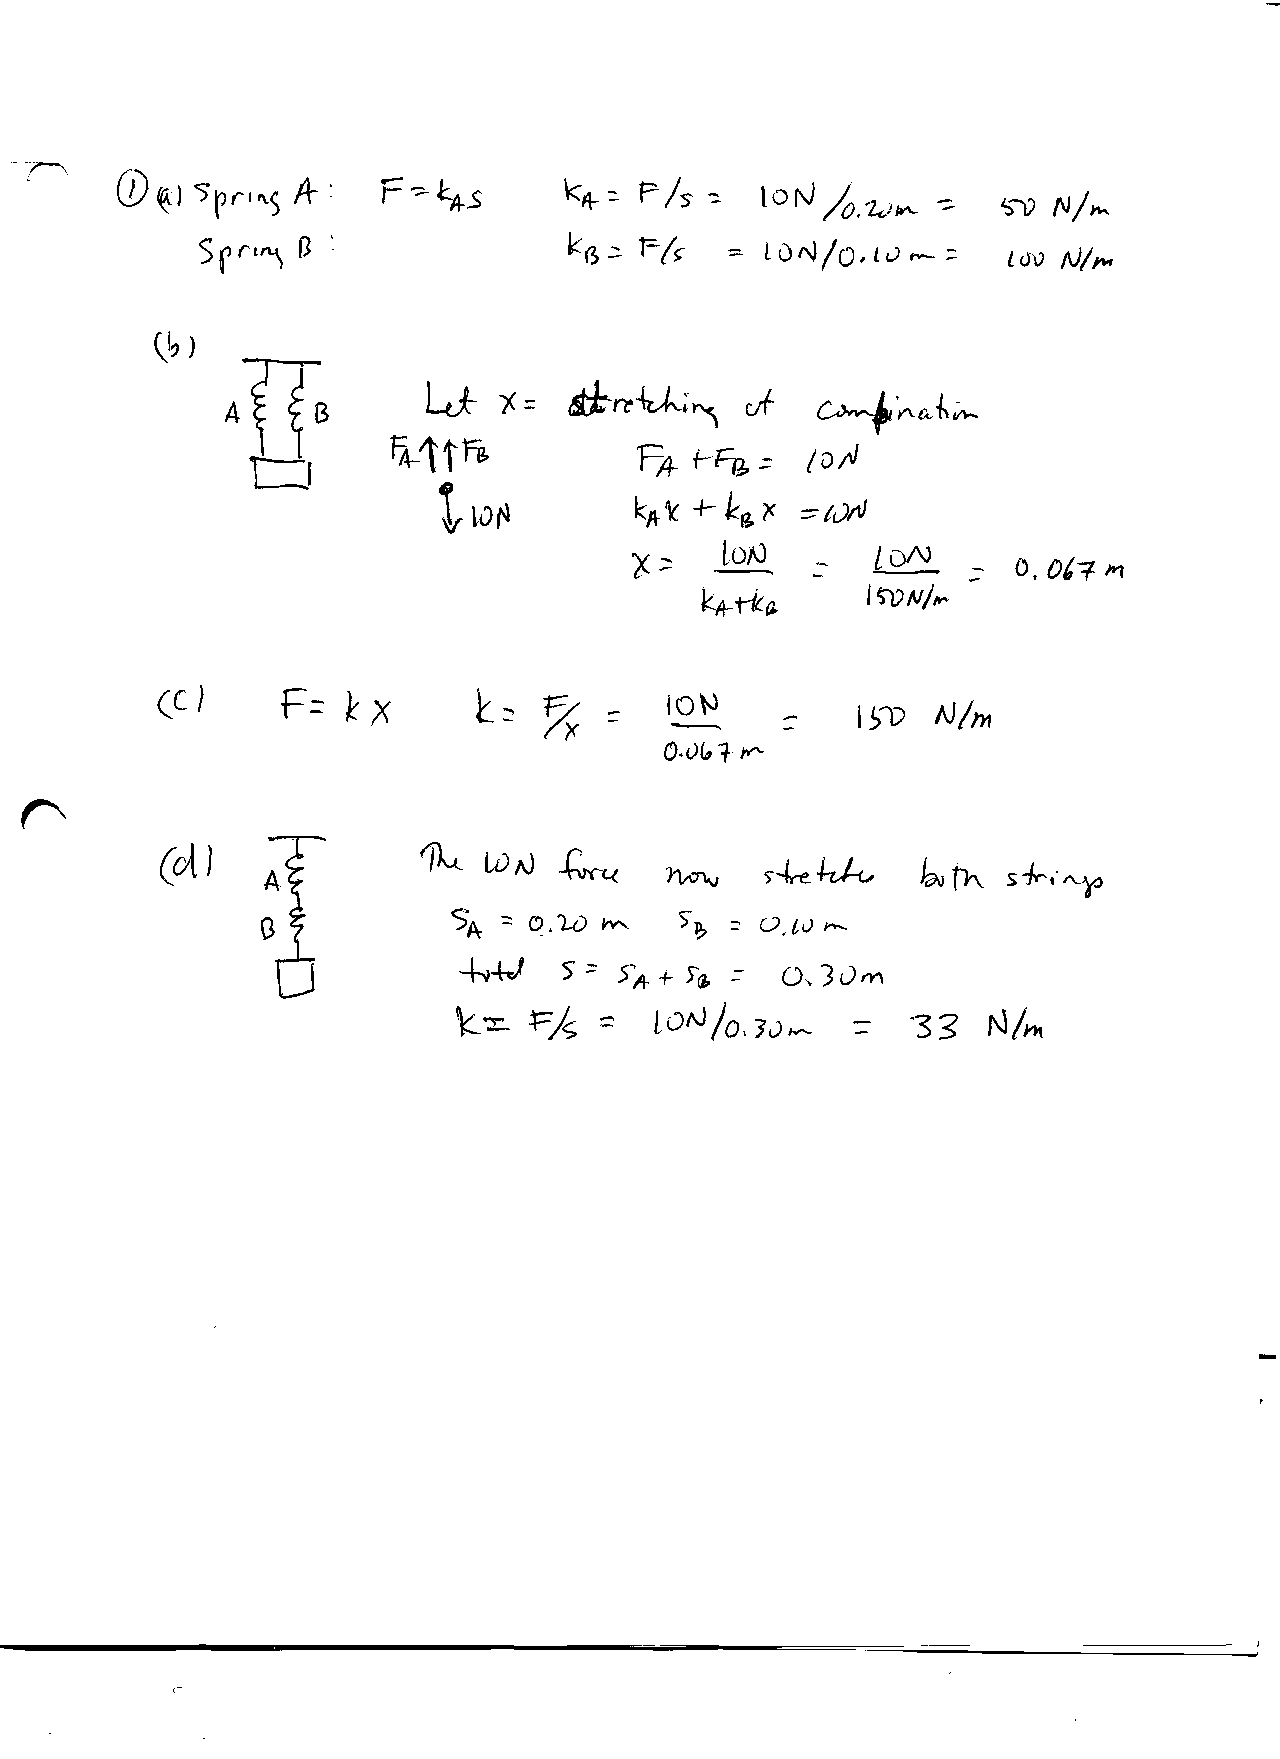 ① (a) Spring A: F = k_A s k_A = F/s = 10N/0.20m = 50 N/m
Spring B: k_B = F/s = 10N/0.10m = 100 N/m
(b)
A B Let x = stretching of combination
F_A ↑↑ F_B F_A + F_B = 10N
↓ 10N k_A x + k_B x = 10N
x = 10N/(k_A + k_B) = 10N/(150 N/m) = 0.067 m
(c) F = kx k = F/x = 10N/0.067m = 150 N/m
(d) The 10N force now stretches both strings
A
B s_A = 0.20 m s_B = 0.10 m
total s = s_A + s_B = 0.30m
k = F/s = 10N/0.30m = 33 N/m